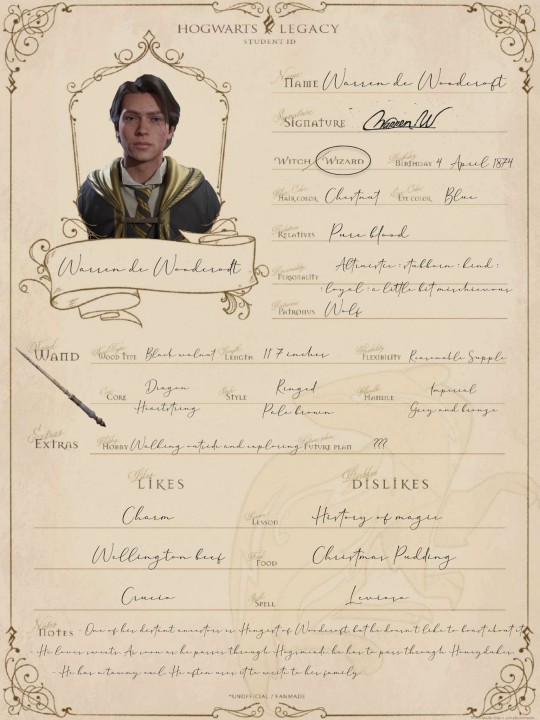 HOGWARTS LEGACY
STUDENT ID
NAME Warren de Woodcroft
SIGNATURE Warren.W
WITCH WIZARD BIRTHDAY 4 April 1874
HAIR COLOR Chestnut EYE COLOR Blue
RELATIVES Pure blood
Warren de Woodcrodt
PERSONALITY Altruistic : stubborn : kind :
: loyal : a little bit mischievous
PATRONUS Wolf
WAND WOOD TYPE Black walnut LENGTH 11 7 inches FLEXIBILITY Reasonable Supple
CORE Dragon Heartstring STYLE Ringed Pale brown HANDLE Imperial Grey and bronze
EXTRAS HOBBY Walking outside and exploring FUTURE PLAN ???
LIKES DISLIKES
Charm LESSON History of magic
Wellington beef FOOD Christmas Pudding
Crucio SPELL Leviosa
NOTES - One of her distant ancestors is Hengist of Woodcroft but he doesn't like to boast about it
- He loves sweets. As soon as he passes through Hogsmead: he has to pass through Honeydukes.
- He has a tawny owl. He often uses it to write to her family
*UNOFFICIAL / FANMADE